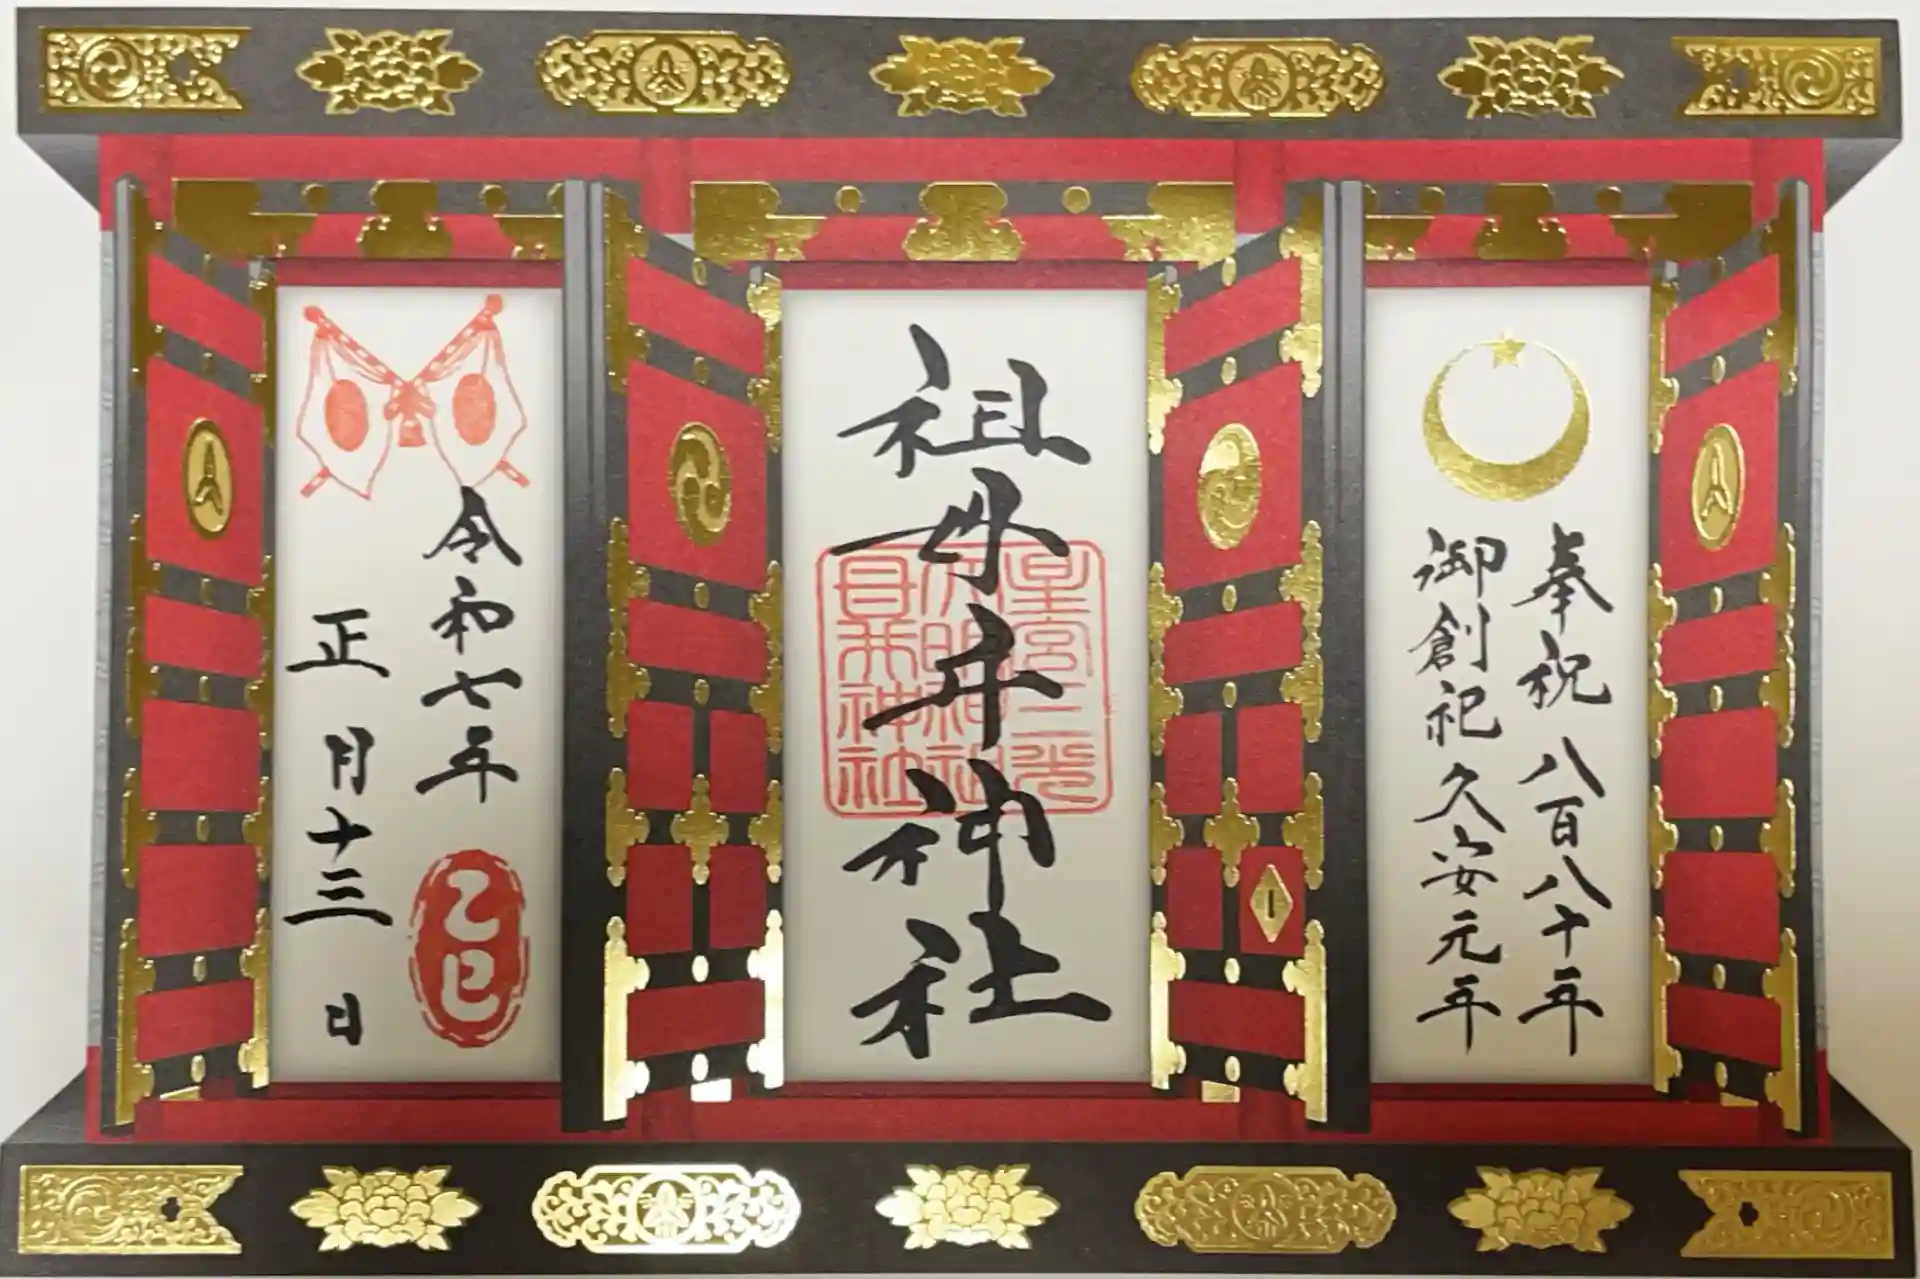 奉祝 八百八十年
御創祀 久安元年
祖母井神社
皇宮二光
大明神祖
母井神社
令和七年
正月十三日
乙巳